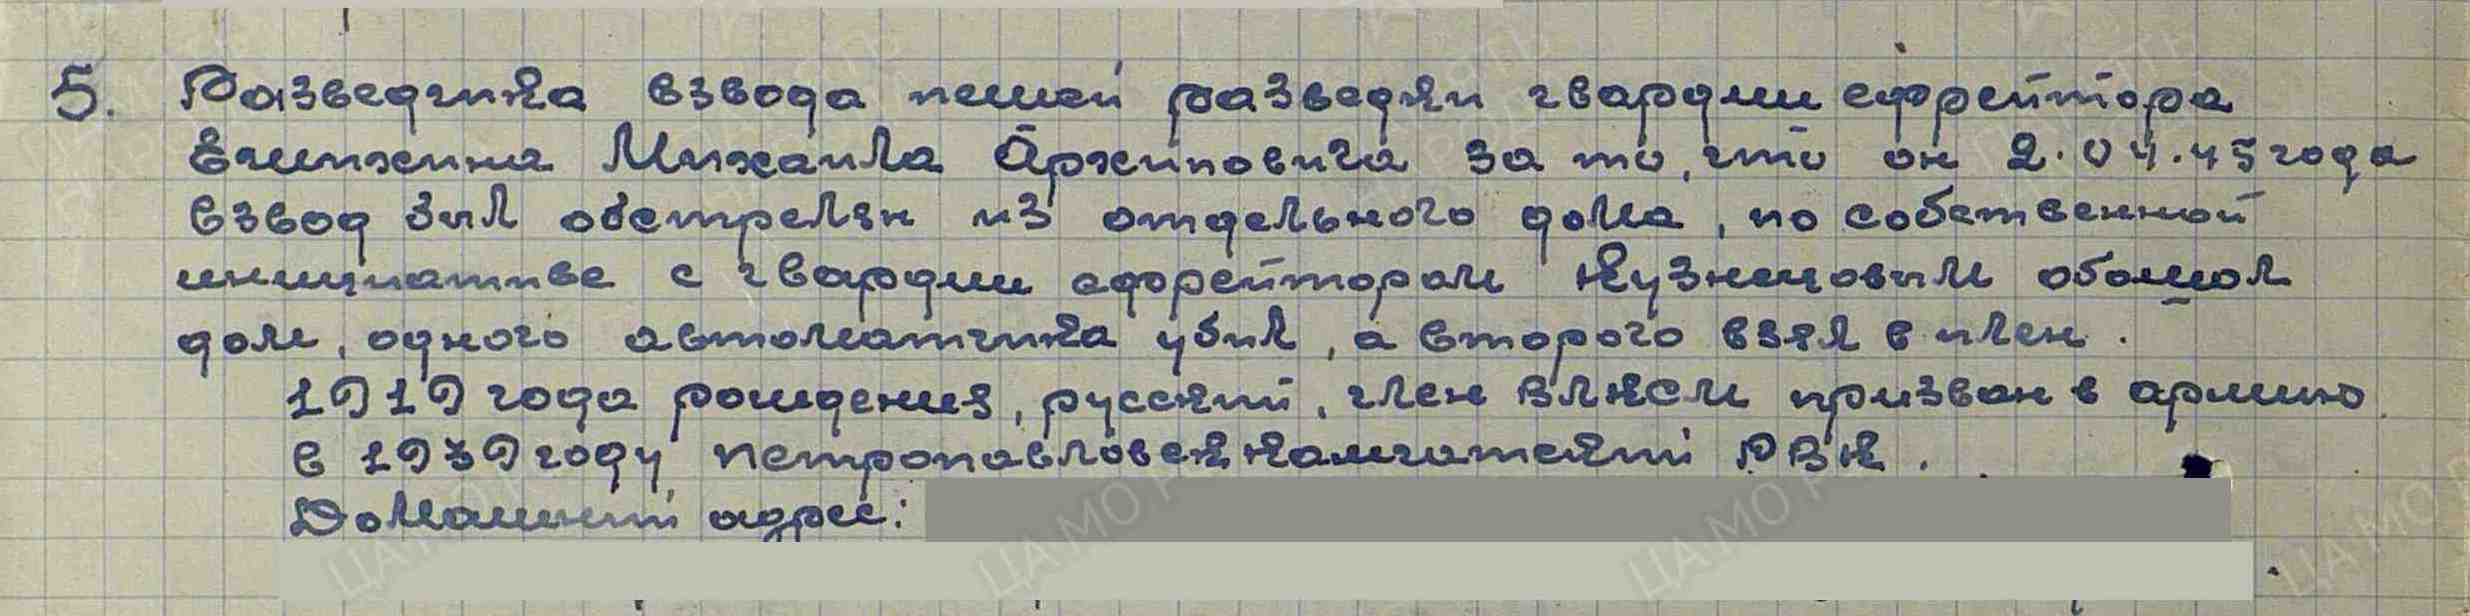 5. Разведчика взвода пешей разведки гвардии ефрейтора
Михаила Архиповича за то, что он 2.04.45 года
взвод был обстрелян из отдельного дома, по собственной
инициативе с гвардии ефрейтором Кузнецовым обошол
дом, одного автоматчика убил, а второго взял в плен.
1919 года рождения, русский, член ВЛКСМ призван в армию
в 1939 году Петропавловск Камчатский РВК.
Домашний адрес: